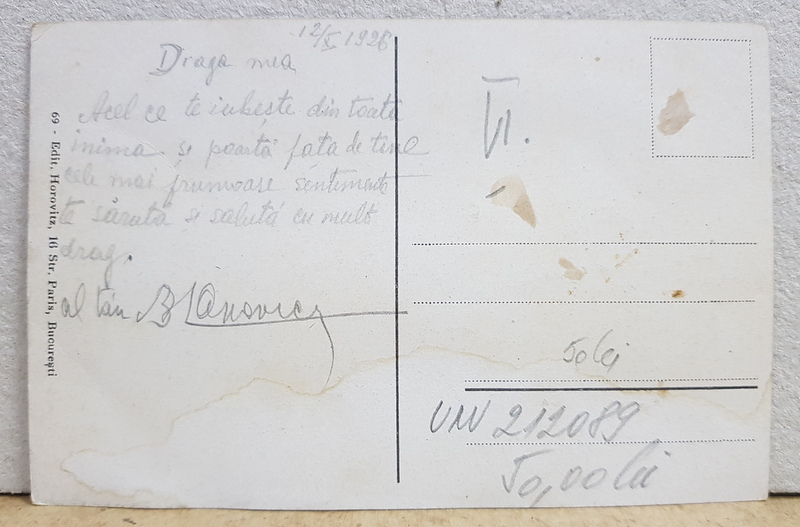 12/X 1926
Draga mea
Acel ce te iubește din toată
inima și poartă fata de tine
cele mai frumoase sentimente
te săruta și salută cu mult
drag.
al tău
69 - Edit. Horovitz, 16 Str. Paris, București
VI.
50 lei
UNV 212089
50,00 lei